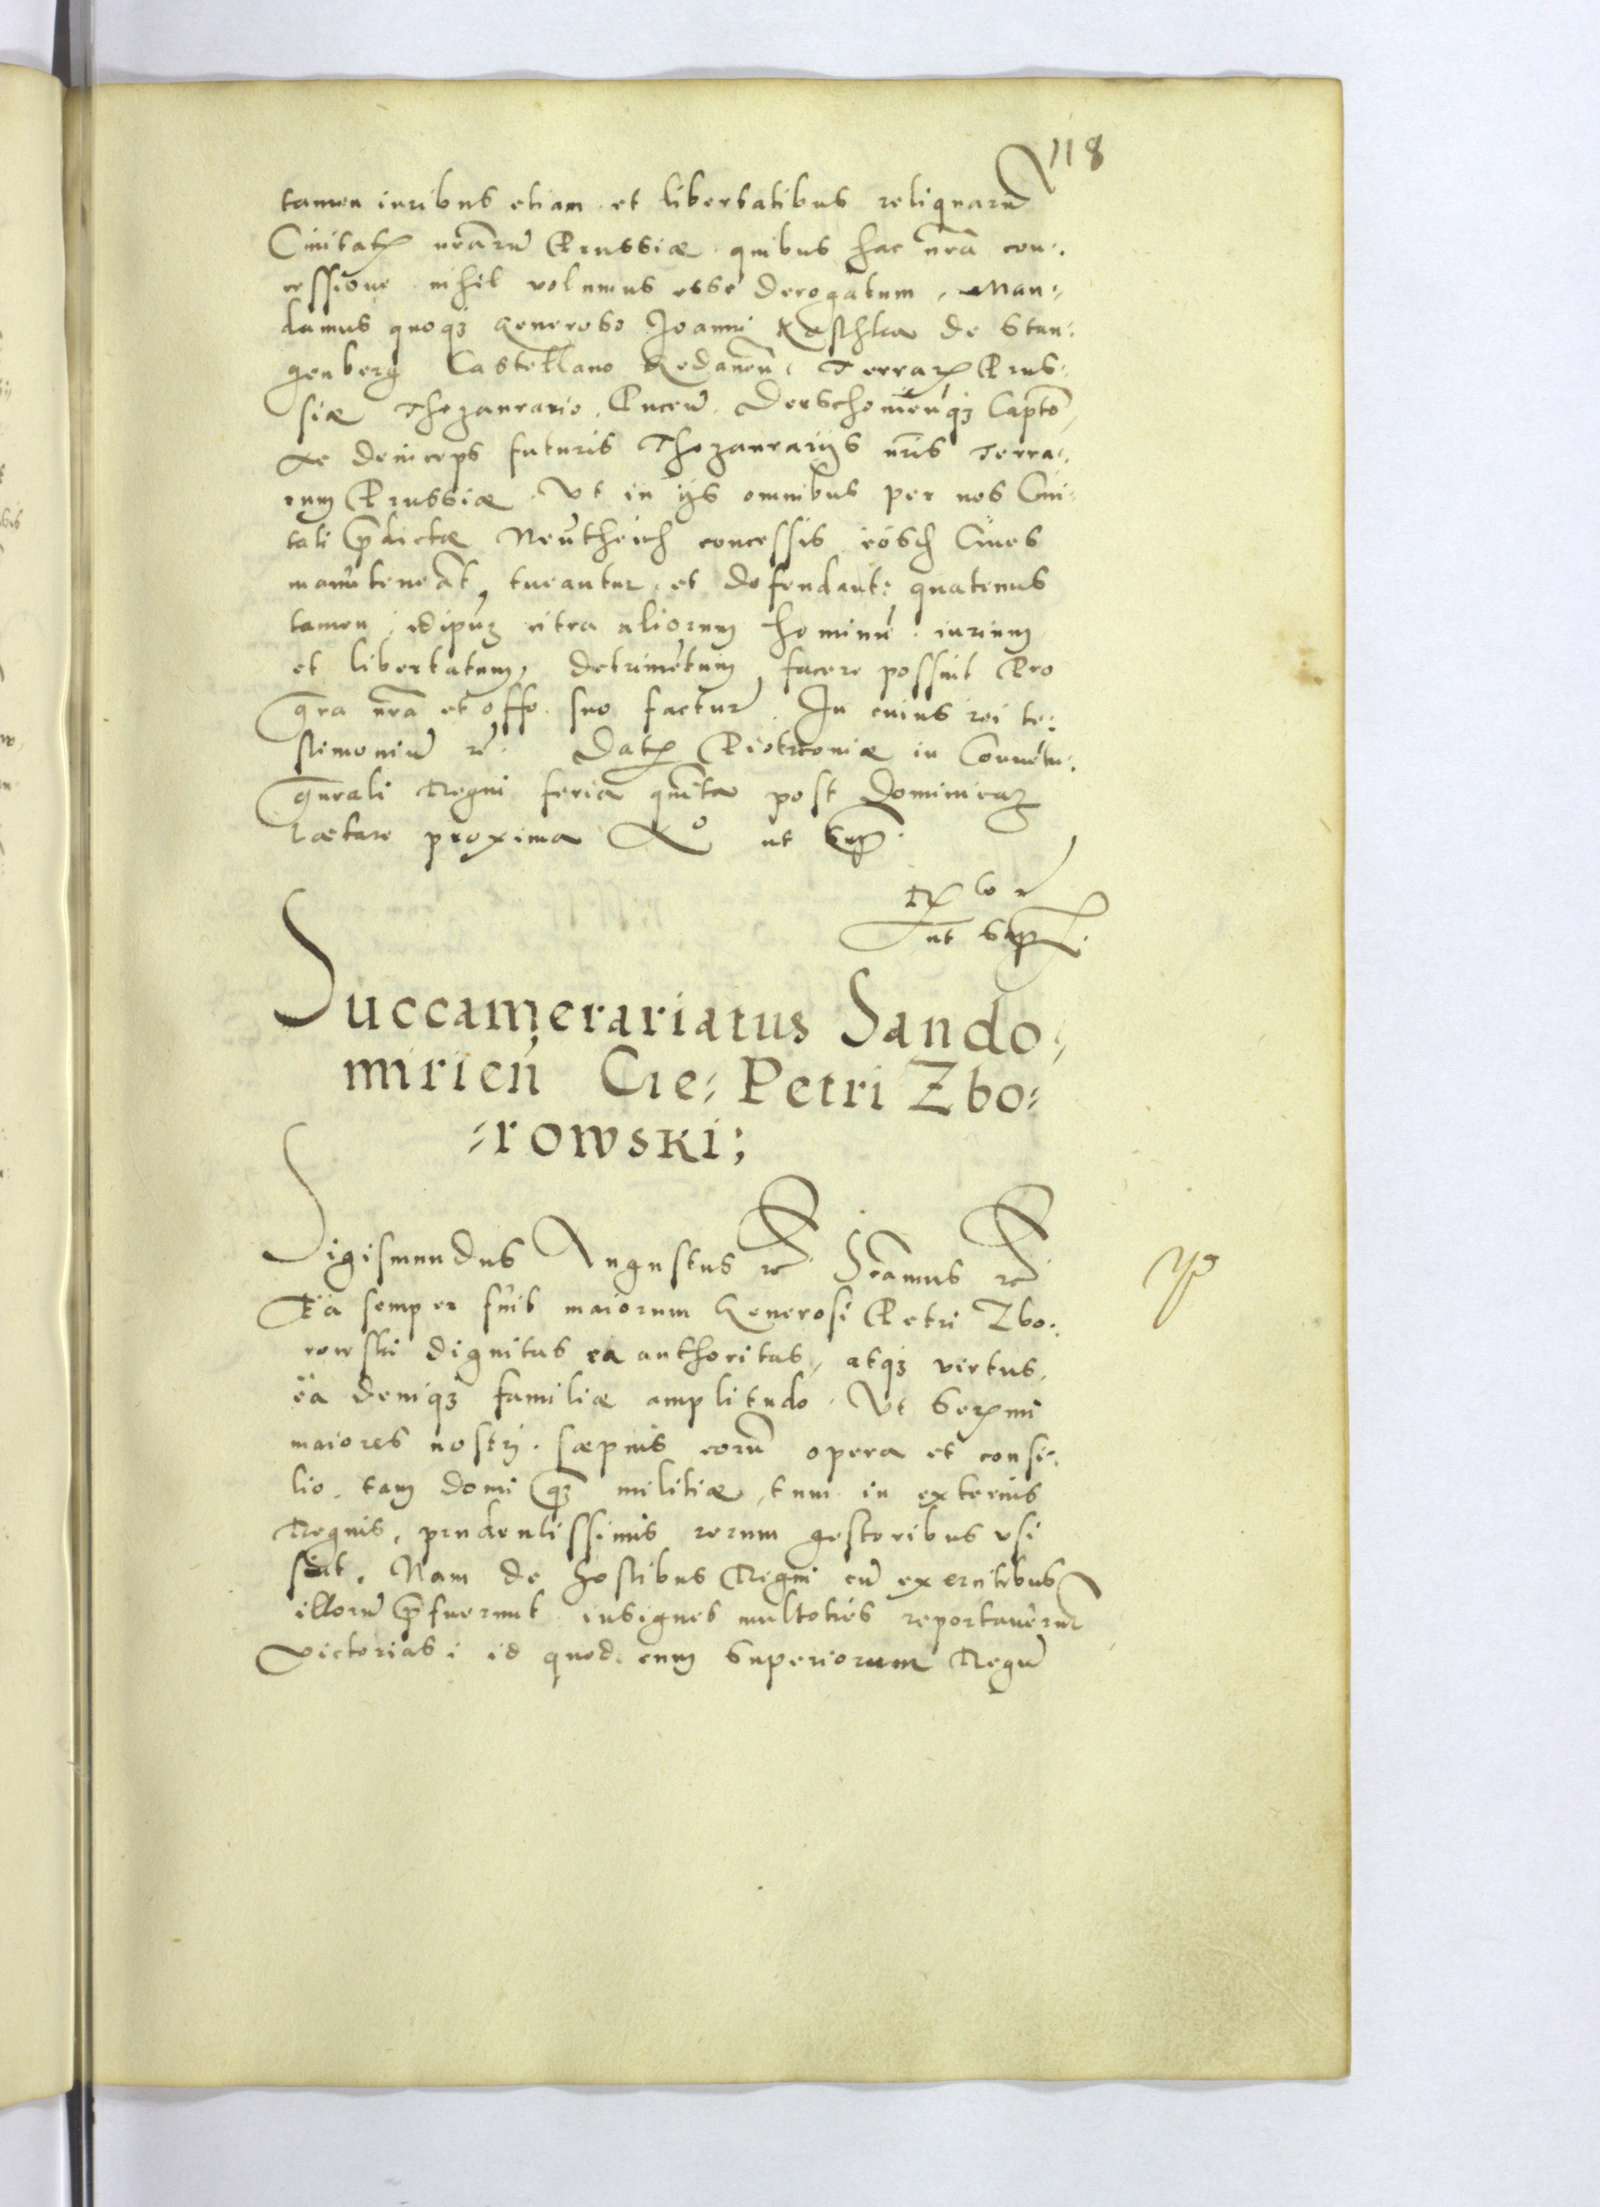 118
tamen iuribus etiam et libertatibus reliquarũ
Ciuitatꝝ nrãrũ Prussiæ quibus hac nrã con:
cessione nihil volumus esse derogatum, Man:
damus quoqꝫ Generoso Joanni Kosthka de Stan:
genberg Castellano Gedanen̄, Terraꝝ Prus:
siæ Thezaurario, Pucen̄ Derschouien̄qꝫ Capto
Ac deinceps futuris Thezaurarijs nr̃is Terra:
rum Prussiæ Vt in ijs omnibus per nos Ciui:
tati p̃dictæ Neutheich concessis eosdem Ciues
manuteneãt, tueantur et defendant: quatenus
tamen idipsuꝫ citra aliorum hominũ iurium
et libertatum, detrimẽtum, facere possint Pro
gr̃a nrã et offo suo facturi. In cuius rei te:
stimoniũ rc̃. Datꝫ Piotrcouiæ in Conuẽtu:
gñrali Regni feria quĩta post Dominicaꝫ
Lætare proxima Aº ut supꝛ̃.
ut supꝛ̃.
Succamerariatus Sando:
mirień Gie: Petri Zbo:
:rowski;
Sigismundus Augustus rc̃ Sc̃amus rc̃
Ea semper fuit maiorum Generosi Petri Zbo:
rowski dignitas ea authoritas, atqꝫ virtus,
ea deniqꝫ familiæ amplitudo. Vt Serꝫmi
maiores nostrj. sæpius eorũ opera et consi:
lio, tam domi qꝫ militiæ, tum in externis
Regnis, prudentissimis rerum gestoribus vsi
sint. Nam de hostibus Regni cũ exercitibus
illorũ p̃fuerunt insignes multoties reportauerũt
victorias: id quod cum Superiorum Regũ